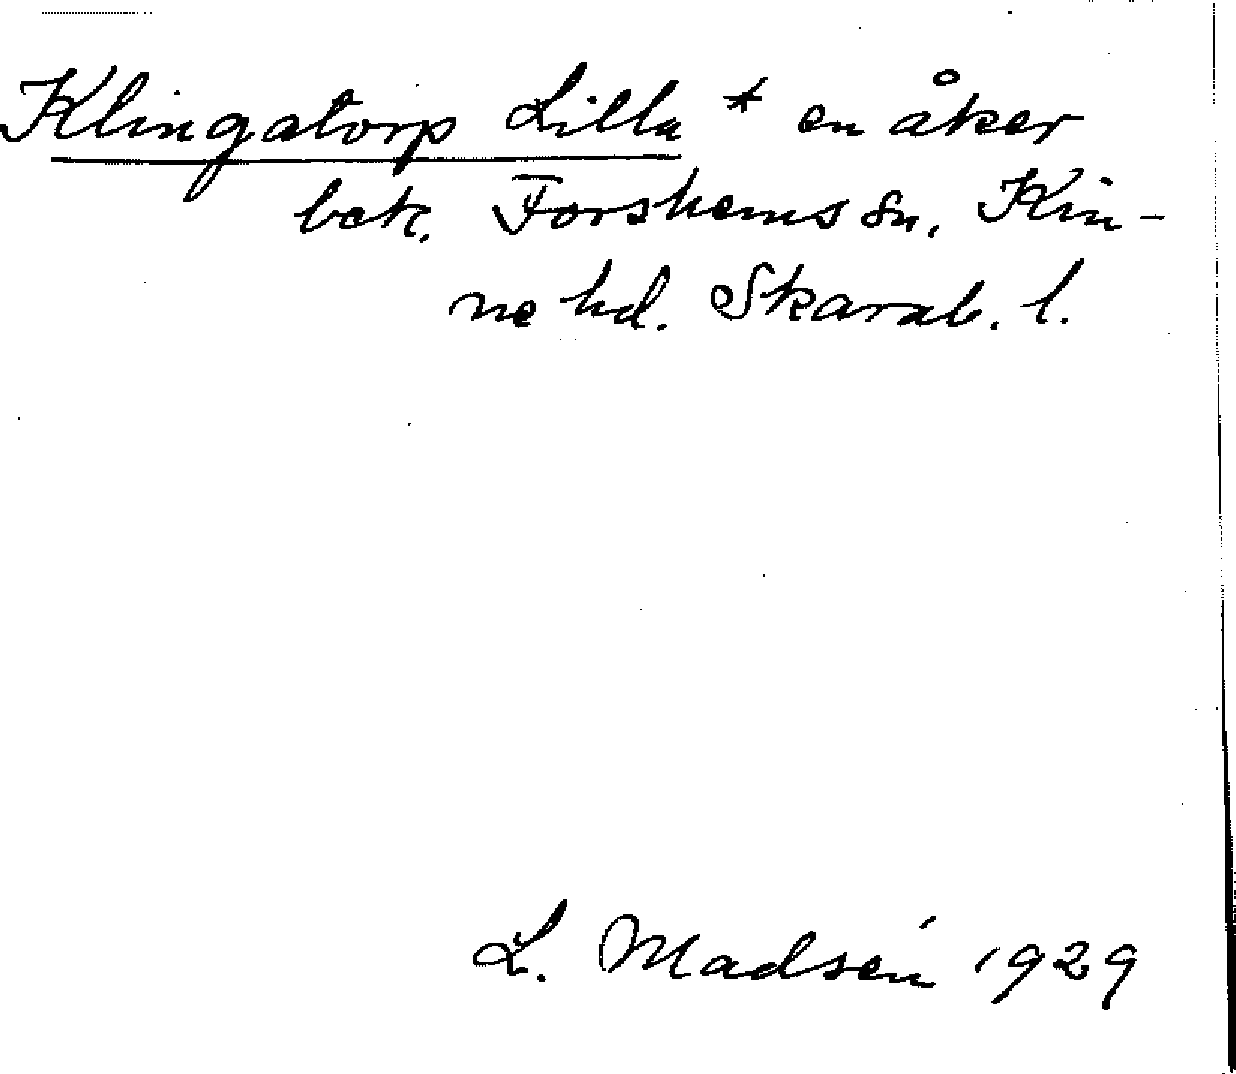 Klingatorp Lilla * en åker
bek. Forshems sn, Kin-
ne hd. Skarab. l.
L. Madsén 1929